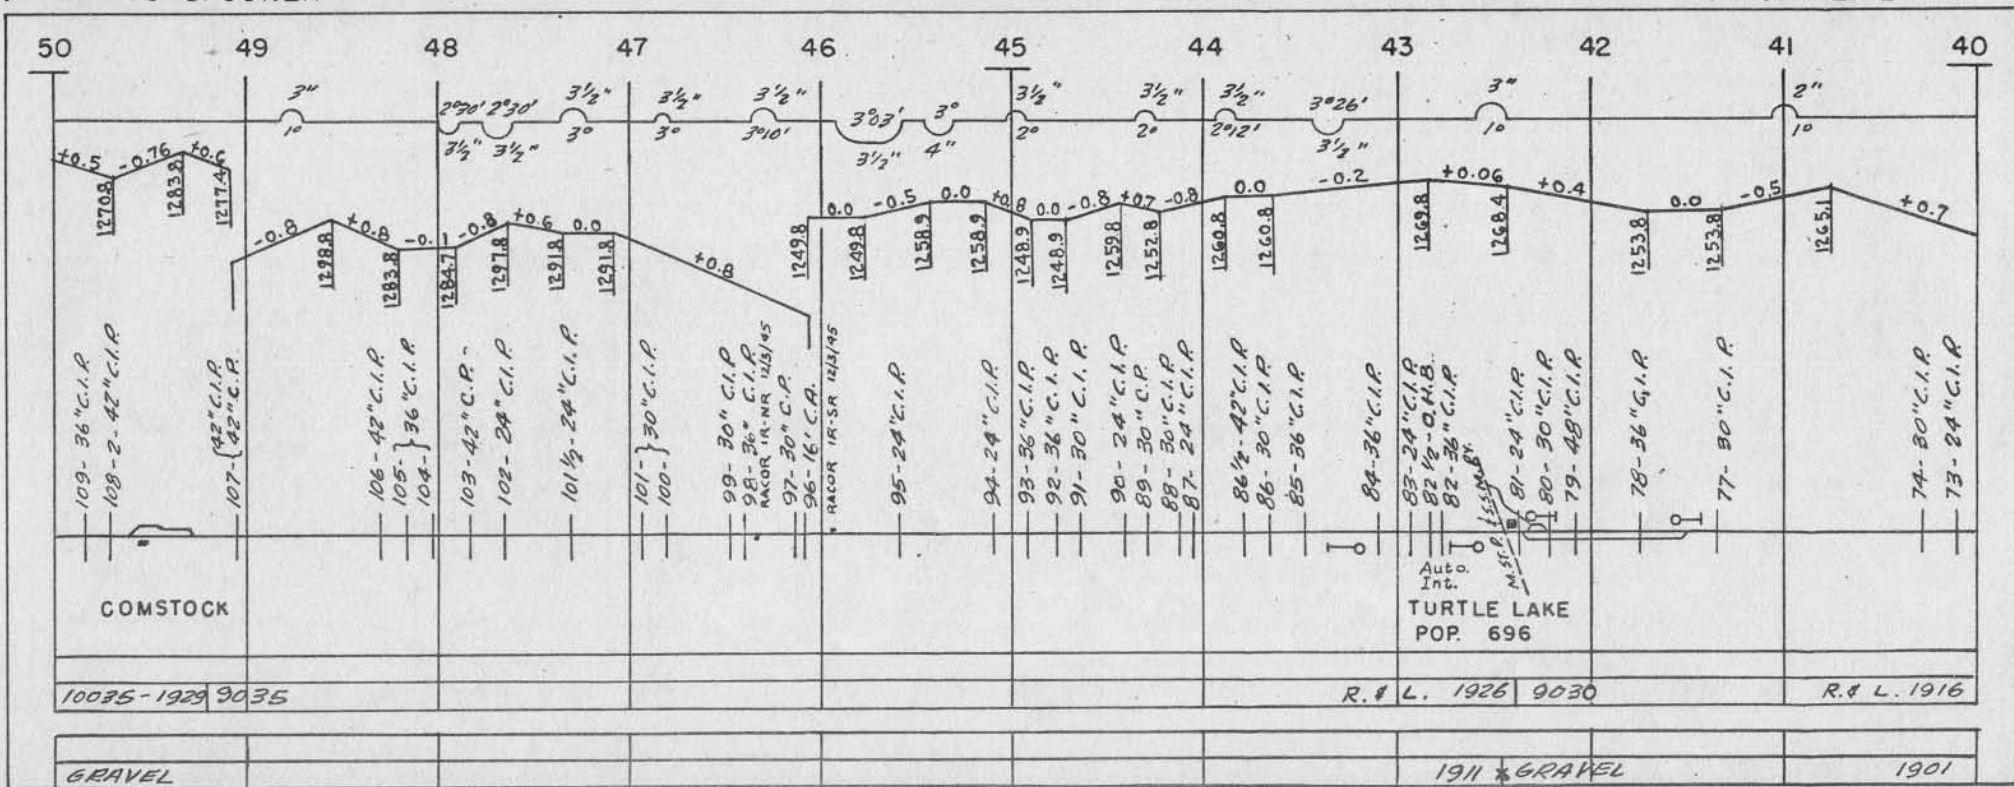 50 49 48 47 46 45 44 43 42 41 40
3" 2°30' 2°30' 3½" 3½" 3½" 3°03' 3° 3½" 3½" 3½" 3°26' 3" 2"
1° 3½" 3½" 3° 3° 3°10' 3½" 4" 2° 2° 2°12' 3½" 1° 1°
+0.5 -0.76 +0.6 -0.8 +0.8 -0.1 -0.8 +0.6 0.0 +0.8 0.0 -0.5 0.0 +0.8 0.0 -0.8 +0.7 -0.8 0.0 -0.2 +0.06 +0.4 0.0 -0.5 +0.7
1270.8 1283.8 1277.4 1298.8 1283.8 1284.7 1297.8 1291.8 1291.8 1249.8 1249.8 1258.9 1258.9 1248.9 1248.9 1259.8 1252.8 1260.8 1260.8 1269.8 1268.4 1253.8 1253.8 1265.1
109- 36"C.I.P.
108-2-42"C.I.P.
107-{42"C.I.P.
{42"C.P.
106-42"C.I.P.
105-}36"C.I.P.
104-}
103-42"C.P.-
102-24"C.I.P.
101½-24"C.I.P.
101-}30"C.I.P.
100-}
99-30"C.I.P.
98-36"C.I.P.
RACOR IR-NR 12/3/45
97-30"C.P.
96-16'C.A.
RACOR IR-SR 12/3/45
95-24"C.I.P.
94-24"C.I.P.
93-36"C.I.P.
92-36"C.I.P.
91-30"C.I.P.
90-24"C.I.P.
89-30"C.P.
88-30"C.I.P.
87-24"C.I.P.
86½-42"C.I.P.
86-30"C.I.P.
85-36"C.I.P.
84-36"C.I.P.
83-24"C.I.P.
82½-O.H.B.
82-36"C.I.P.
M.St.P.&S.S.M.RY.
81-24"C.I.P.
80-30"C.I.P.
79-48"C.I.P.
78-36"C.I.P.
77-30"C.I.P.
74-30"C.I.P.
73-24"C.I.P.
Auto.
Int.
COMSTOCK
TURTLE LAKE
POP. 696
10035-1929 9035 R.& L. 1926 9030 R.& L. 1916
GRAVEL 1911 GRAVEL 1901